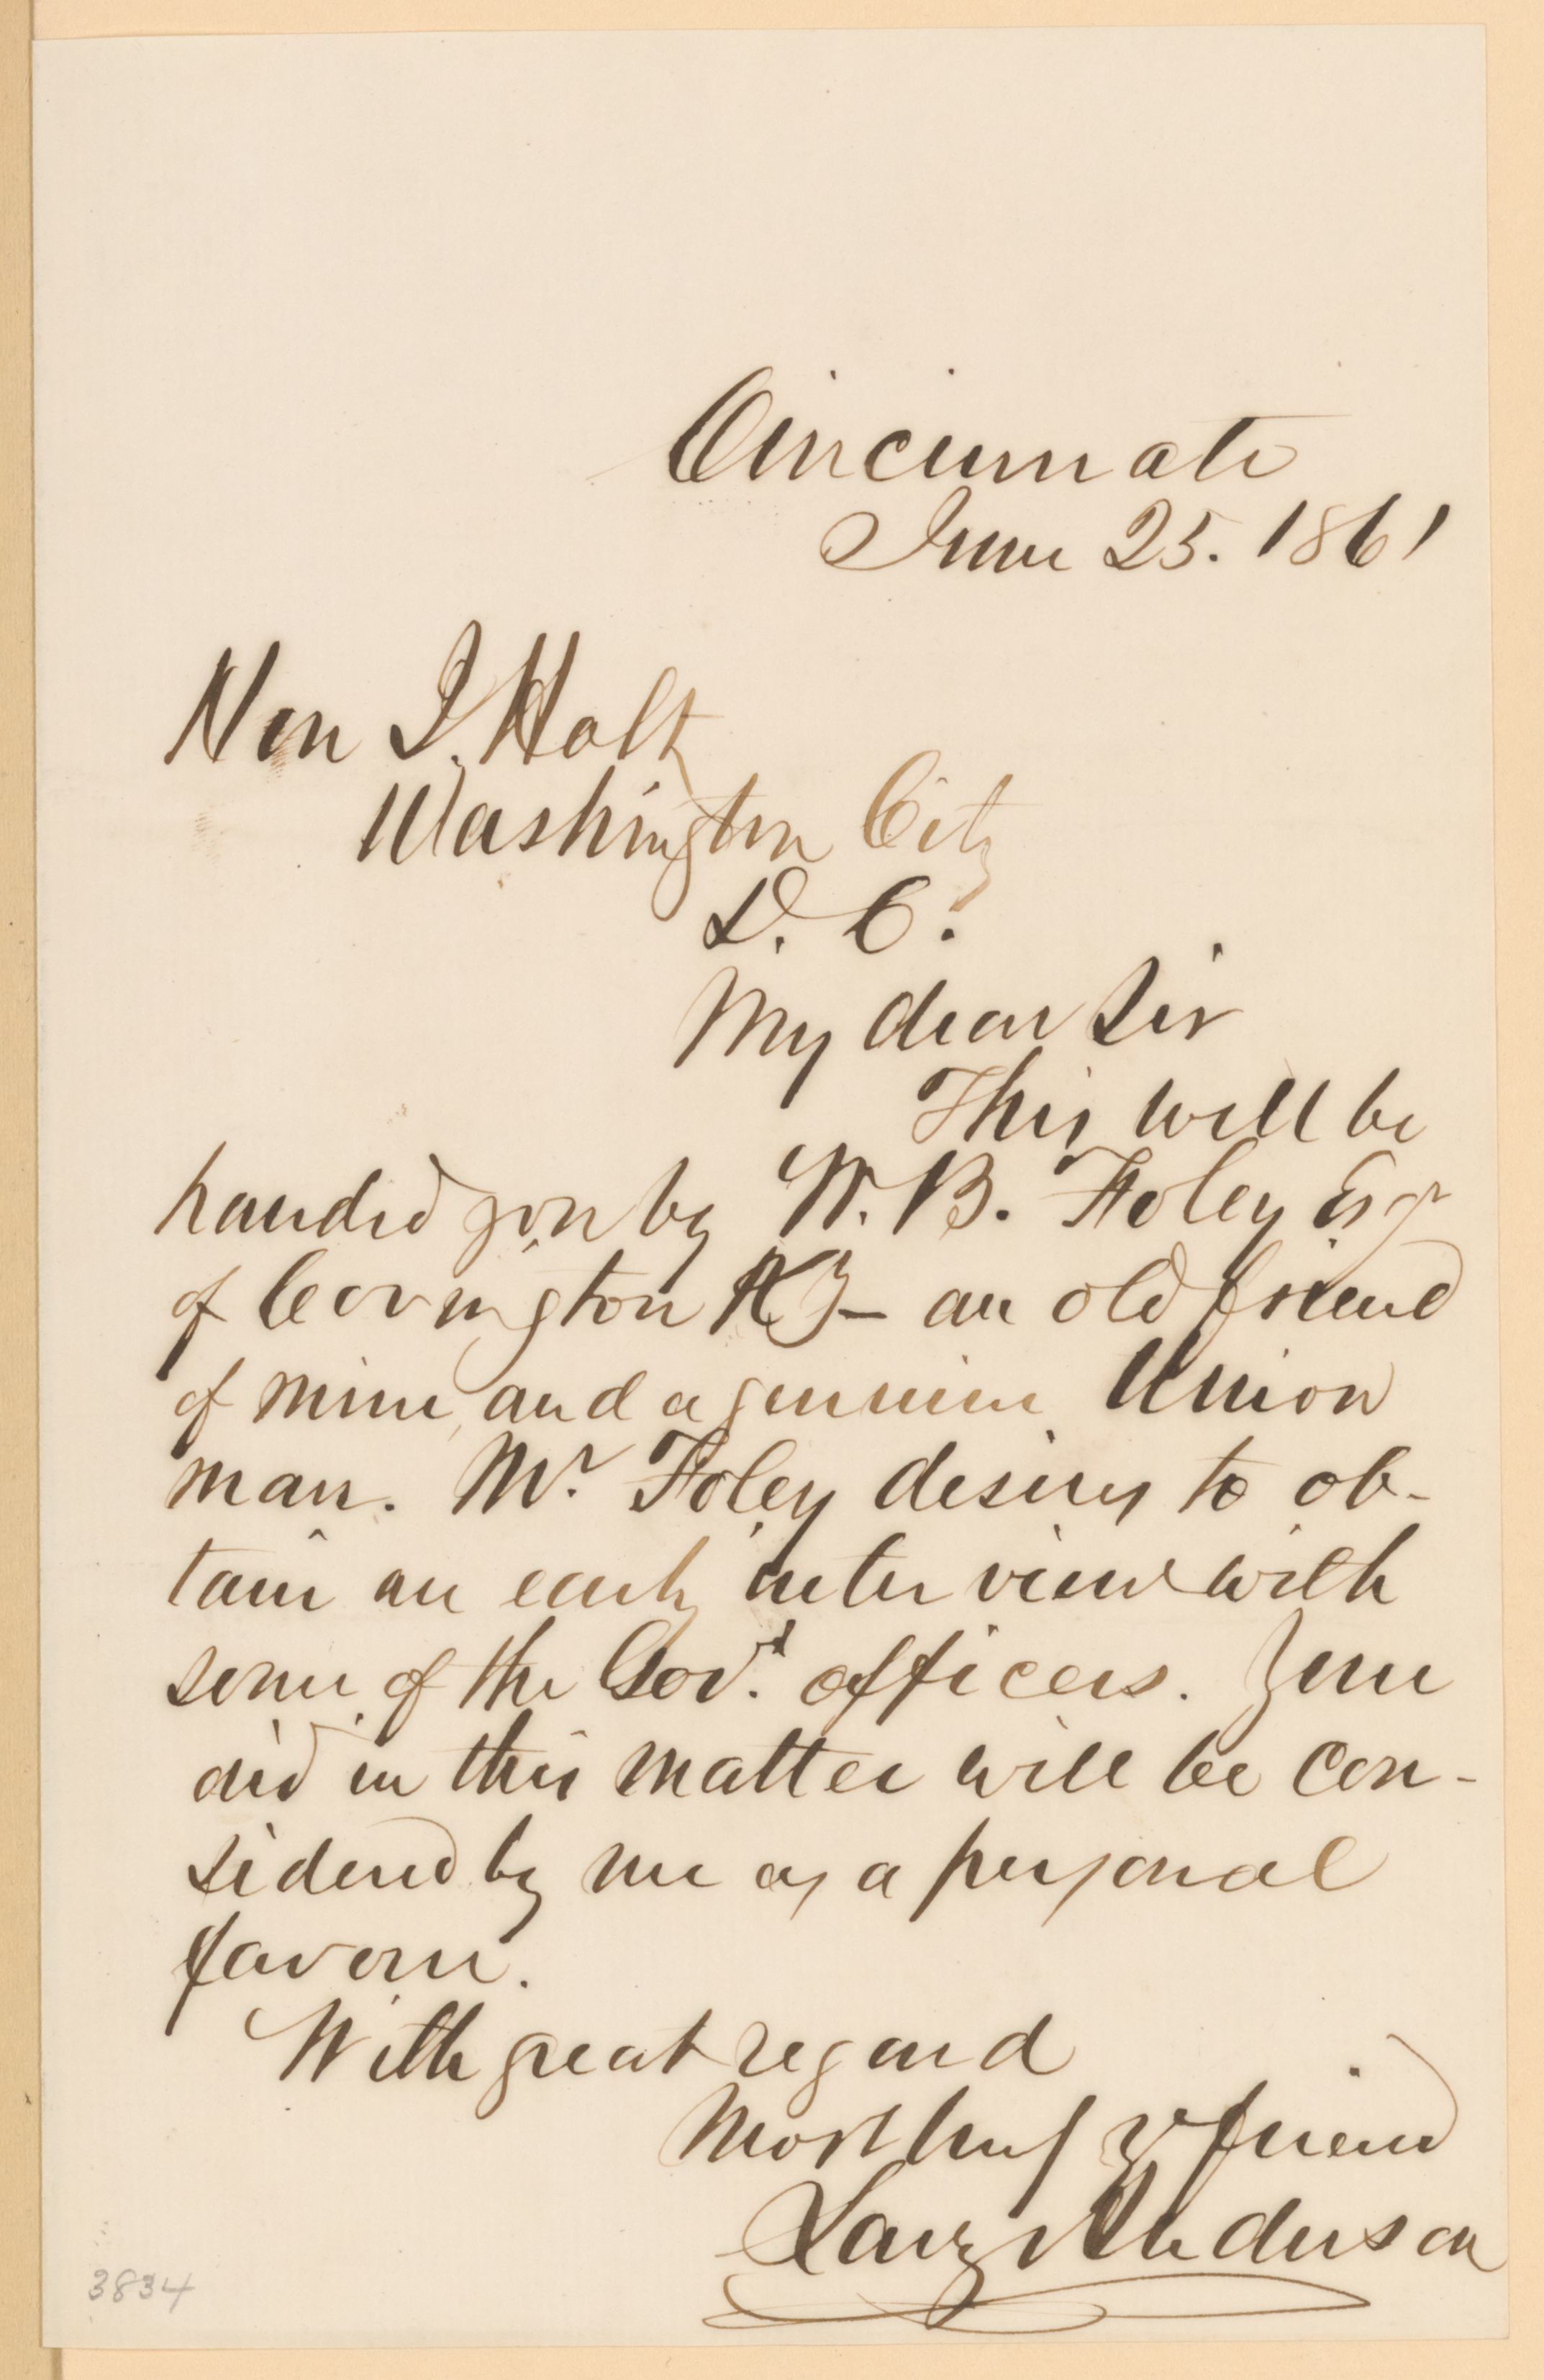 Cincinnati
June 25. 1861
Hon J. Holt
Washington City
D. C.
My dear Sir
This will be
handed you by W. B. Foley Esqr
of Covington Ky — an old friend
of mine, and a genuine Union
man. Mr. Foley desires to ob-
tain an early interview with
some of the Govt. officers. Your
aid in this matter will be con-
sidered by me as a personal
favour.
With great regard
Most truly yr friend
Larz Anderson
3834